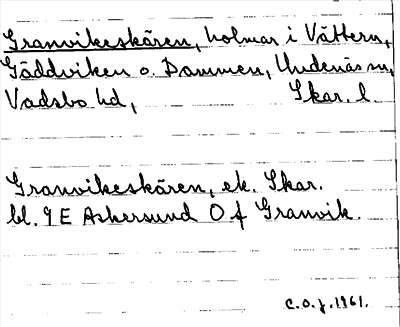 Granvikeskären, holmar i Vättern,
Gäddviken o. Dammen, Undenäs sn,
Vadsbo hd, Skar. l.
Granvikeskären, ek. Skar.
bl. 9E Askersund O.f Granvik.
C.O.J. 1961.